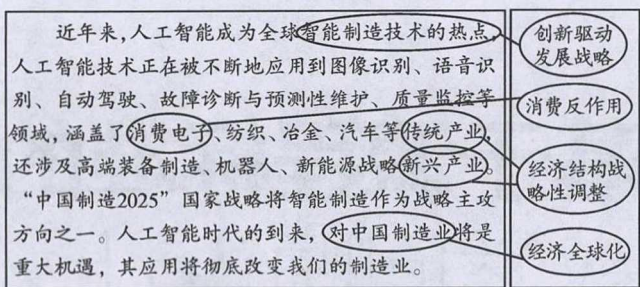 近年来,人工智能成为全球智能制造技术的热点,
人工智能技术正在被不断地应用到图像识别、语音识
别、自动驾驶、故障诊断与预测性维护、质量监控等
领域,涵盖了消费电子、纺织、冶金、汽车等传统产业,
还涉及高端装备制造、机器人、新能源战略新兴产业。
“中国制造2025”国家战略将智能制造作为战略主攻
方向之一。人工智能时代的到来,对中国制造业将是
重大机遇，其应用将彻底改变我们的制造业。
创新驱动
发展战略
消费反作用
经济结构战
略性调整
经济全球化